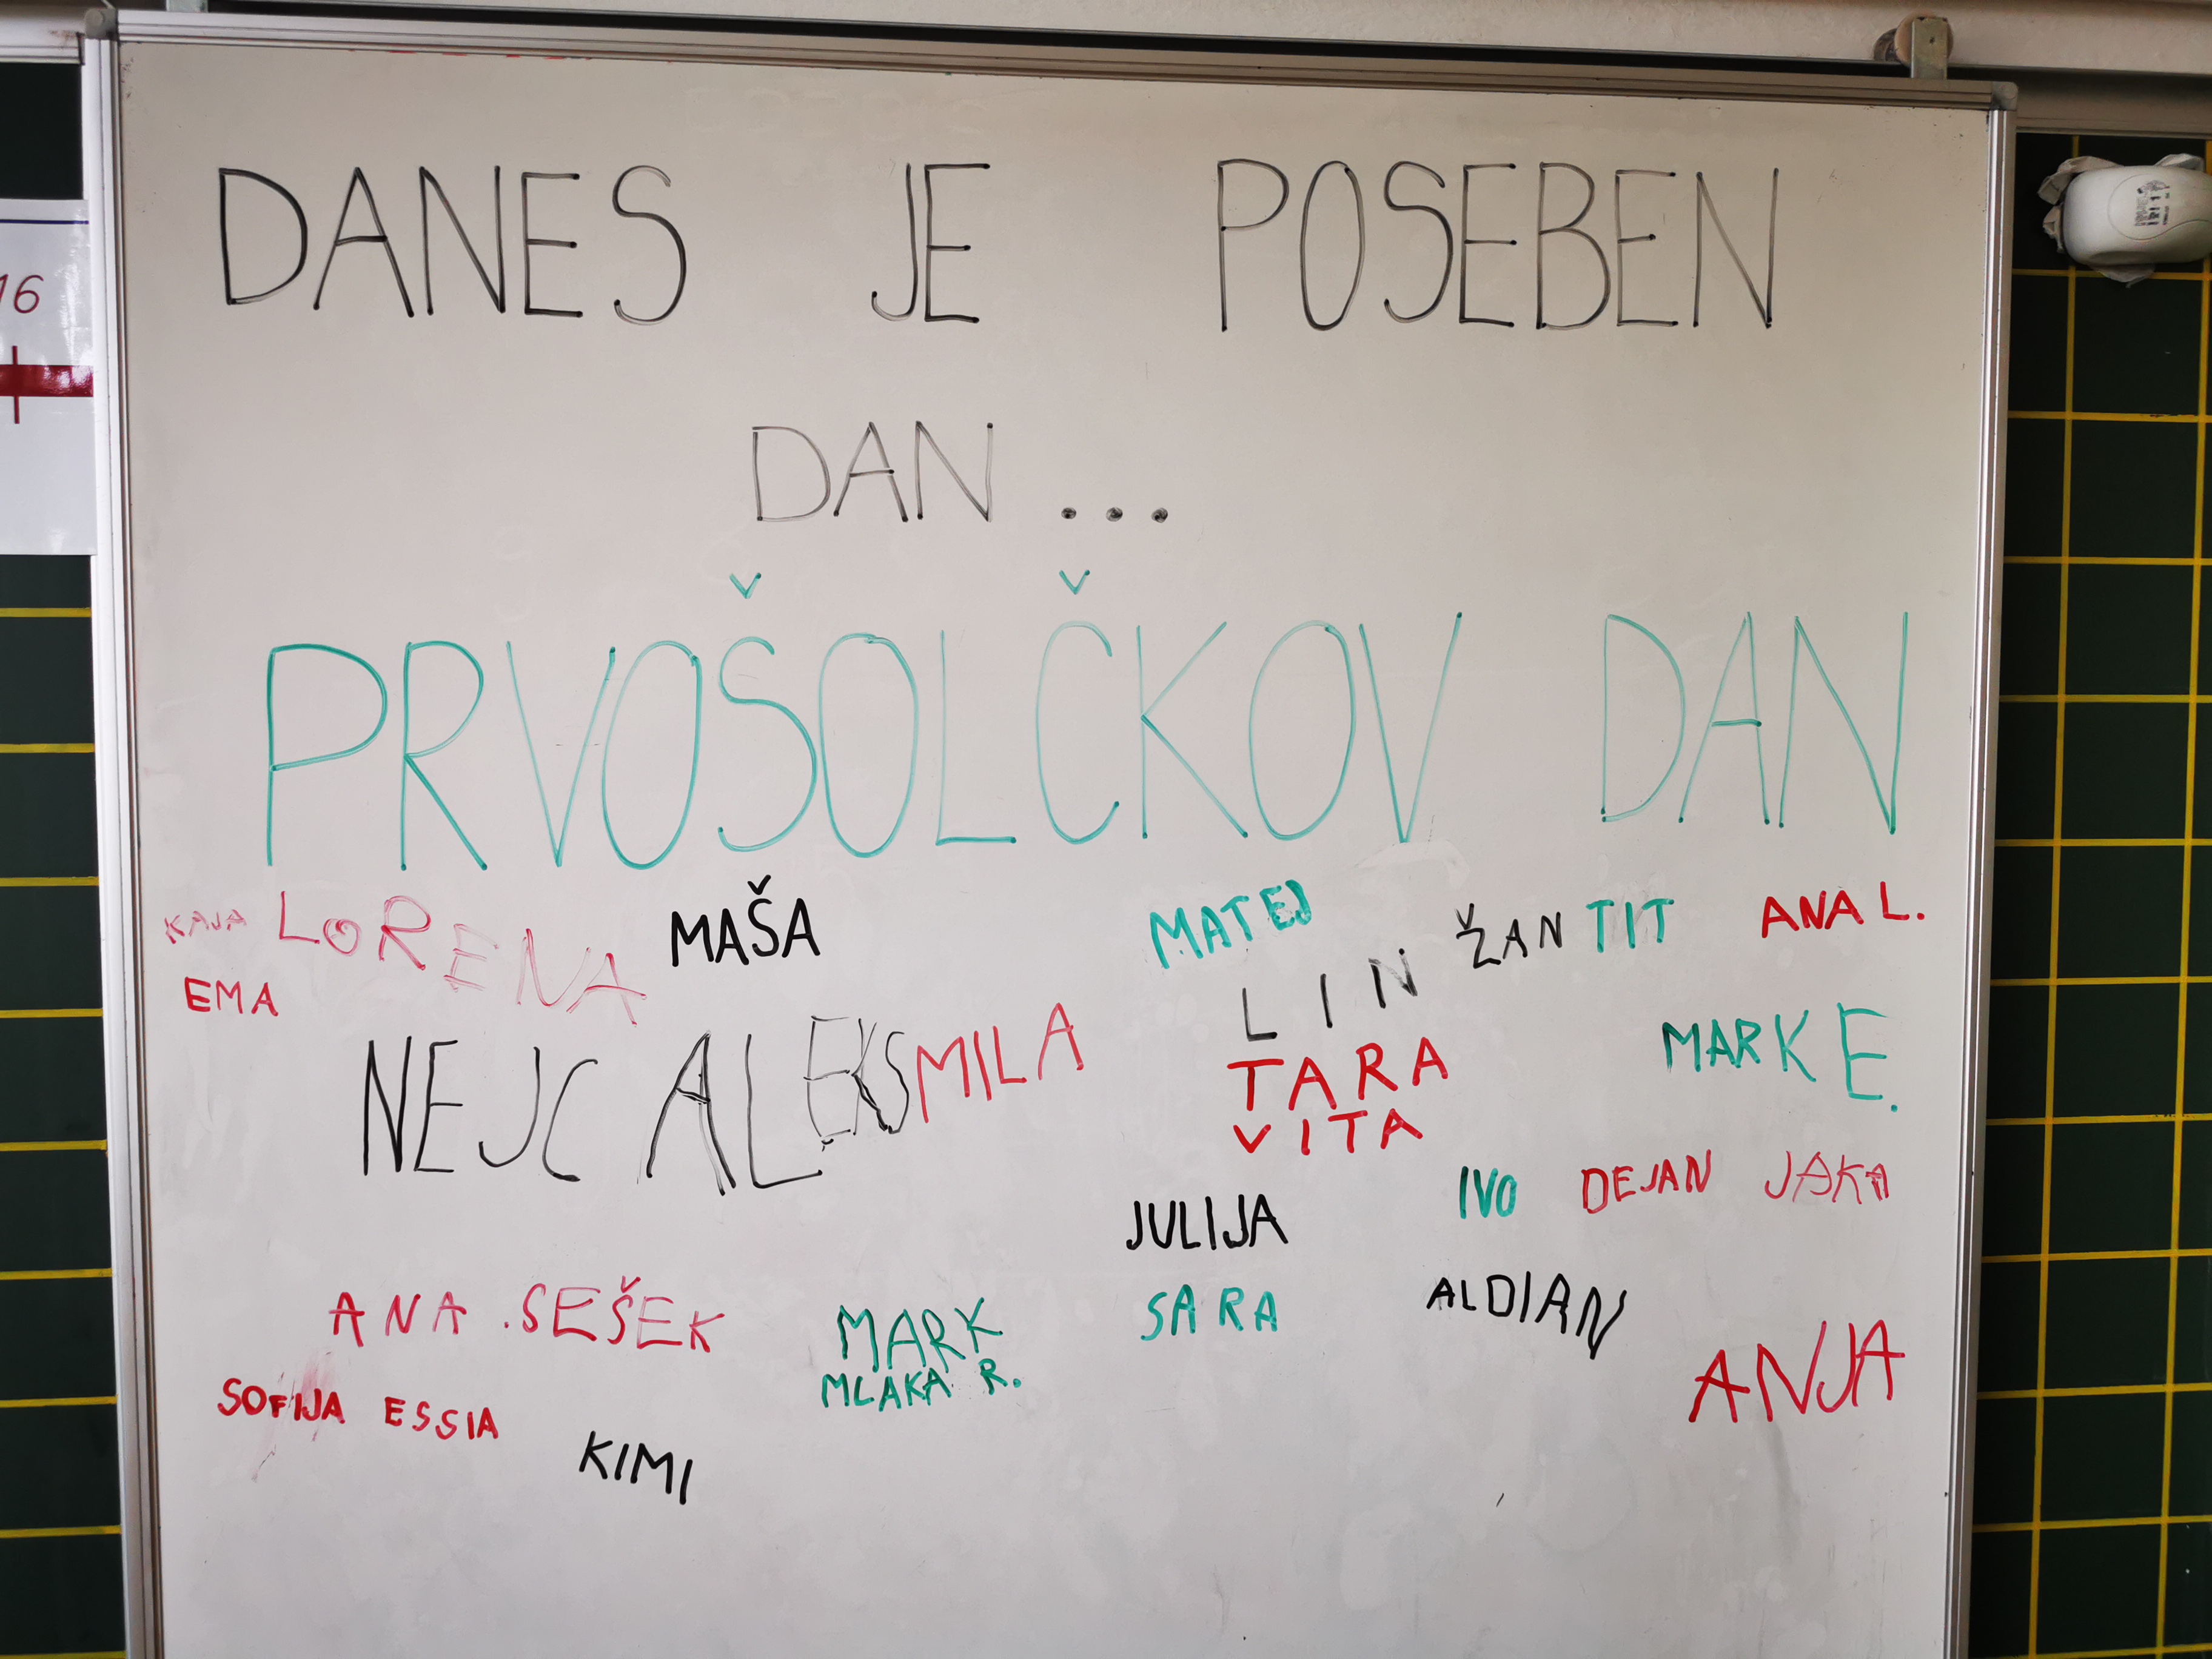 DANES JE POSEBEN
DAN ...
PRVOŠOLČKOV DAN
KAJA LORENA MAŠA MATEJ ŽAN TIT ANA L.
EMA LIN
NEJC ALEKS MILA TARA MARK E.
VITA
JULIJA IVO DEJAN JAKA
ANA SEŠEK MARK SARA ALDIAN
MLAKA R. ANJA
SOFIJA ESSIA
KIMI
16